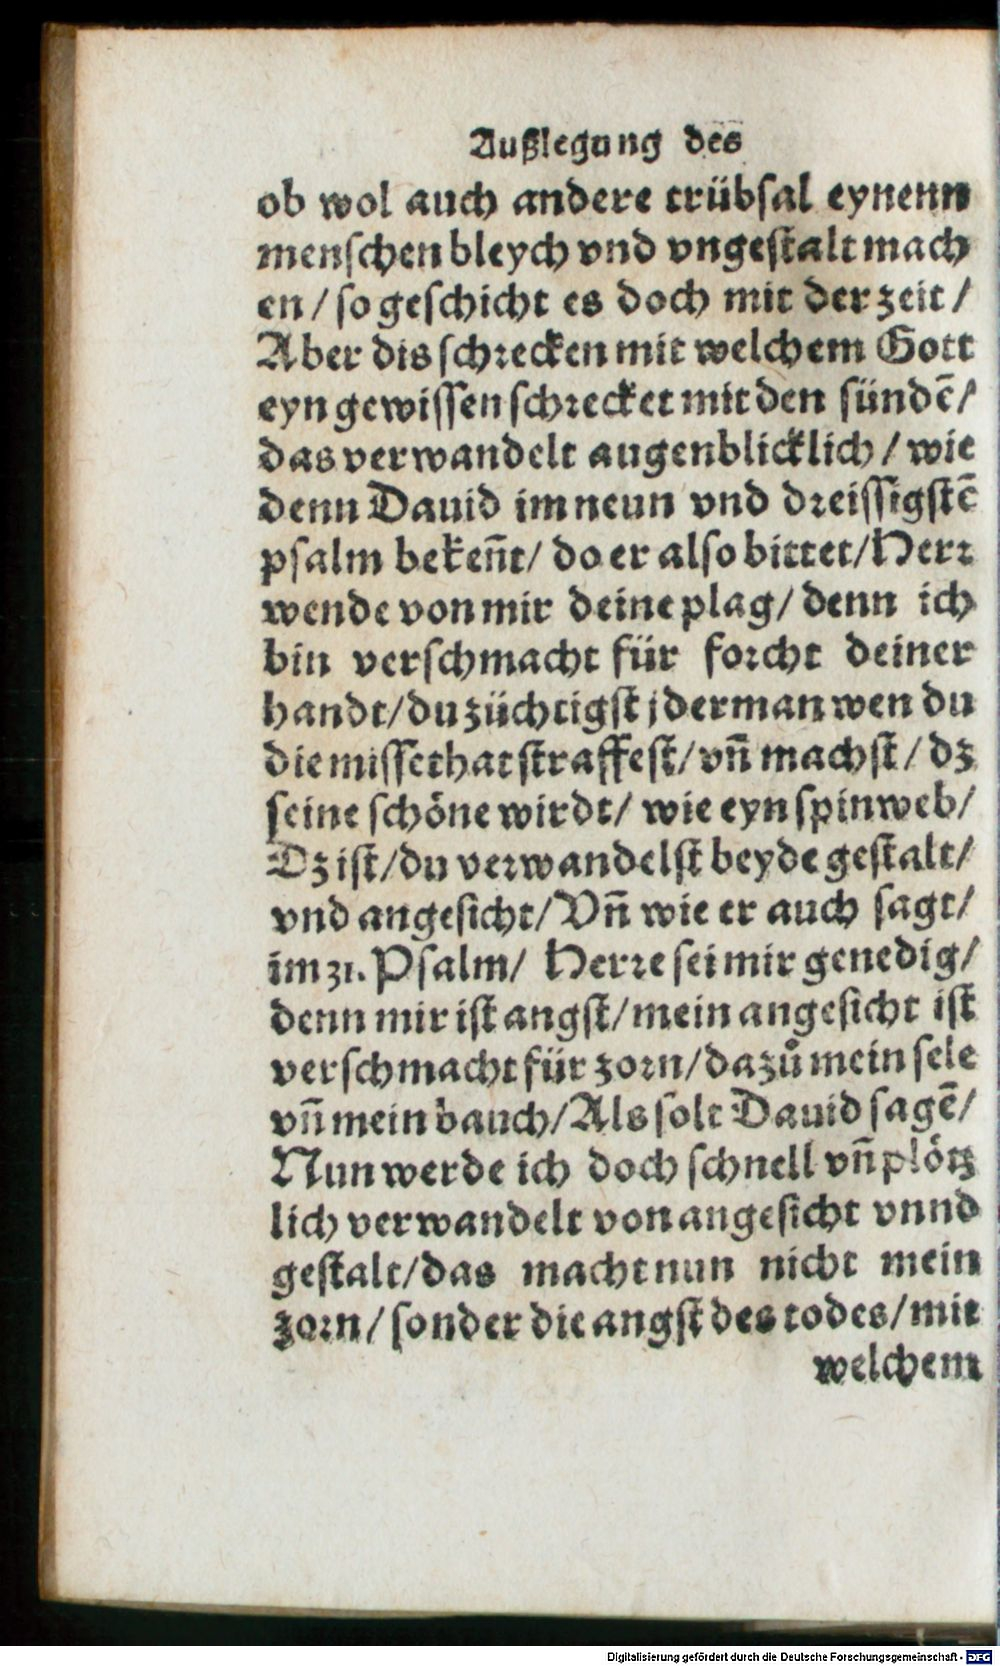 Außlegung des
ob wol auch andere trübsal eynenn
menschen bleych vnd vngestalt mach
en / so geschicht es doch mit der zeit /
Aber dis schrecken mit welchem Gott
eyn gewissen schrecket mit den sündē /
das verwandelt augenblicklich / wie
denn Dauid im neun vnd dreissigstē
psalm bekeñt / do er also bittet / Herr
wende von mir deine plag / denn ich
bin verschmacht für forcht deiner
handt / du züchtigst jderman wen du
die missethat straffest / vñ machst / dz
seine schöne wirdt / wie eyn spinweb /
Dz ist / du verwandelst beyde gestalt /
vnd angesicht / Vñ wie er auch sagt /
im 31. Psalm / Herre sei mir genedig /
denn mir ist angst / mein angesicht ist
verschmacht für zorn / dazů mein sele
vñ mein bauch / Als solt Dauid sagē /
Nun werde ich doch schnell vñ plötz
lich verwandelt von angesicht vnnd
gestalt / das macht nun nicht mein
zorn / sonder die angst des todes / mit
welchem
Digitalisierung gefördert durch die Deutsche Forschungsgemeinschaft - DFG